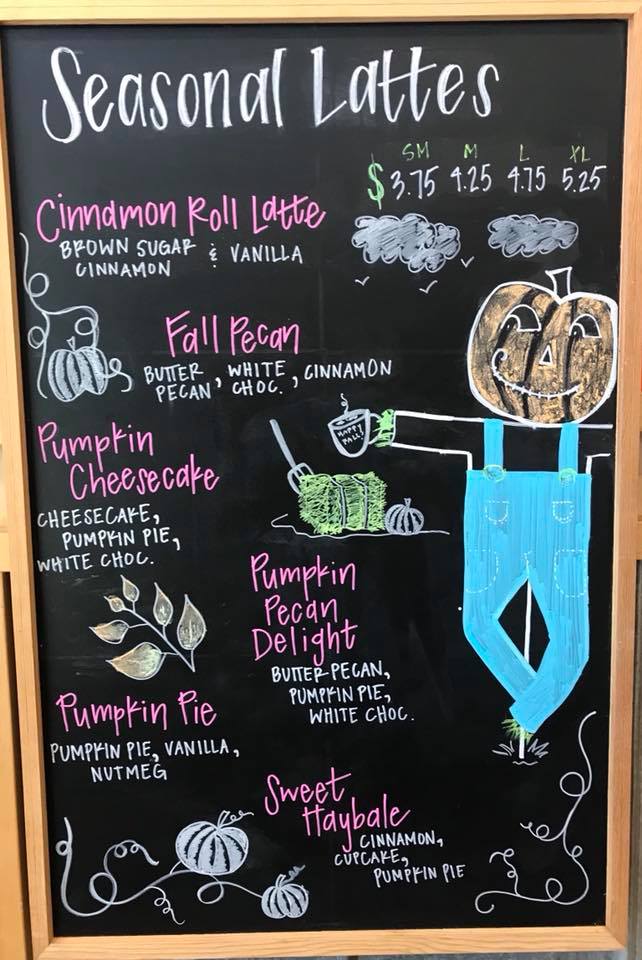 Seasonal Lattes
SM M L XL
$ 3.75 4.25 4.75 5.25
Cinnamon Roll Latte
BROWN SUGAR & VANILLA
CINNAMON
Fall Pecan
BUTTER PECAN, WHITE CHOC., CINNAMON
HAPPY
FALL!
Pumpkin
Cheesecake
CHEESECAKE,
PUMPKIN PIE,
WHITE CHOC.
Pumpkin
Pecan
Delight
BUTTER PECAN,
PUMPKIN PIE,
WHITE CHOC.
Pumpkin Pie
PUMPKIN PIE, VANILLA,
NUTMEG
Sweet
Haybale
CINNAMON,
CUPCAKE,
PUMPKIN PIE